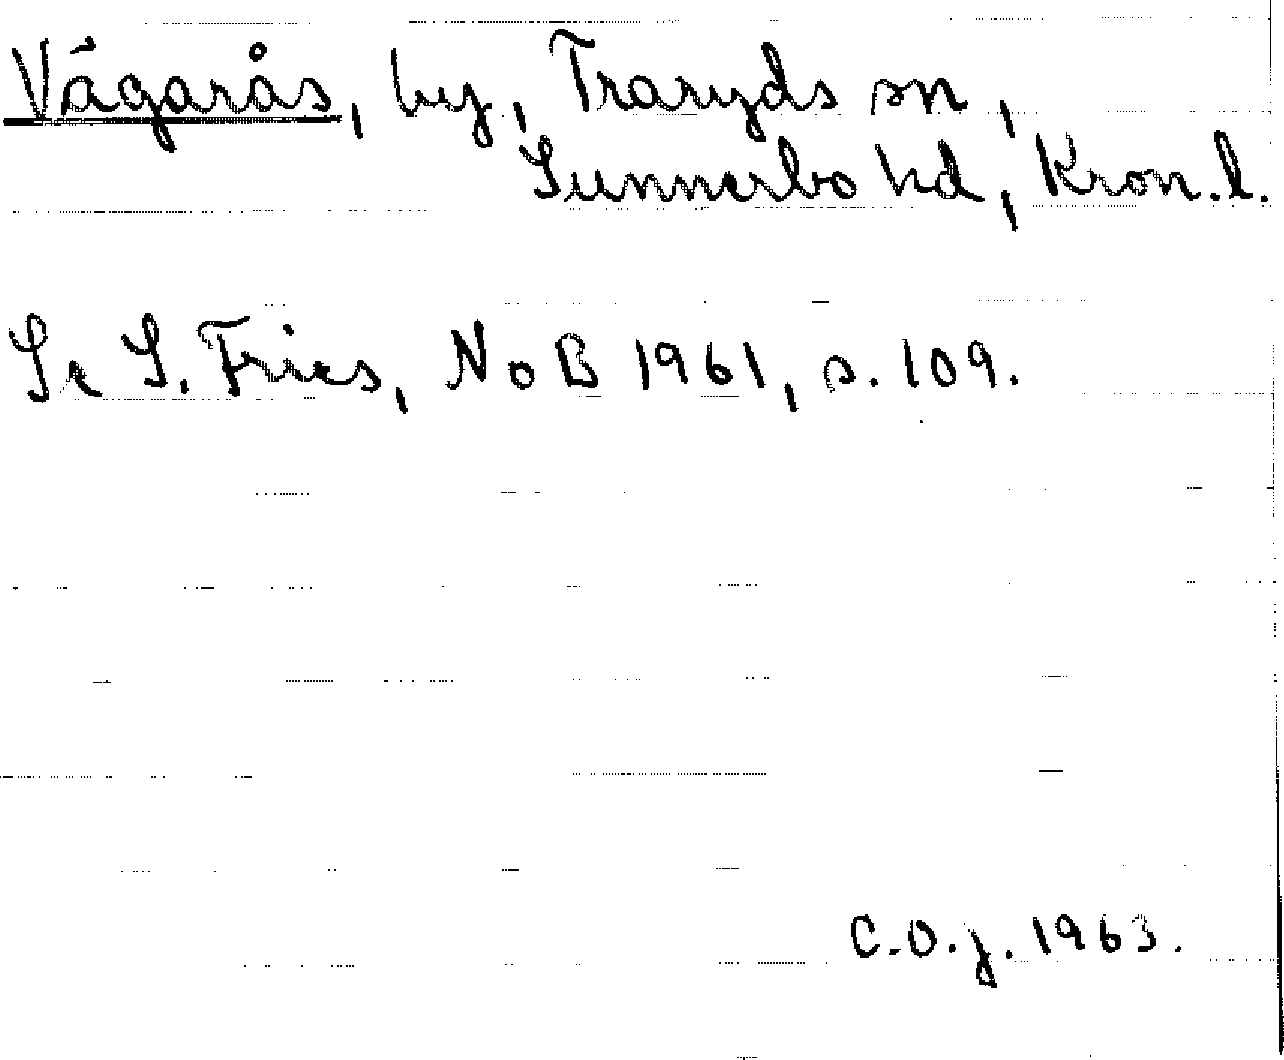 Vågarås, by, Traryds sn,
Sunnerbo hd, Kron. l.
Se S. Fries, NoB 1961, s. 109.
C.O.j. 1963.